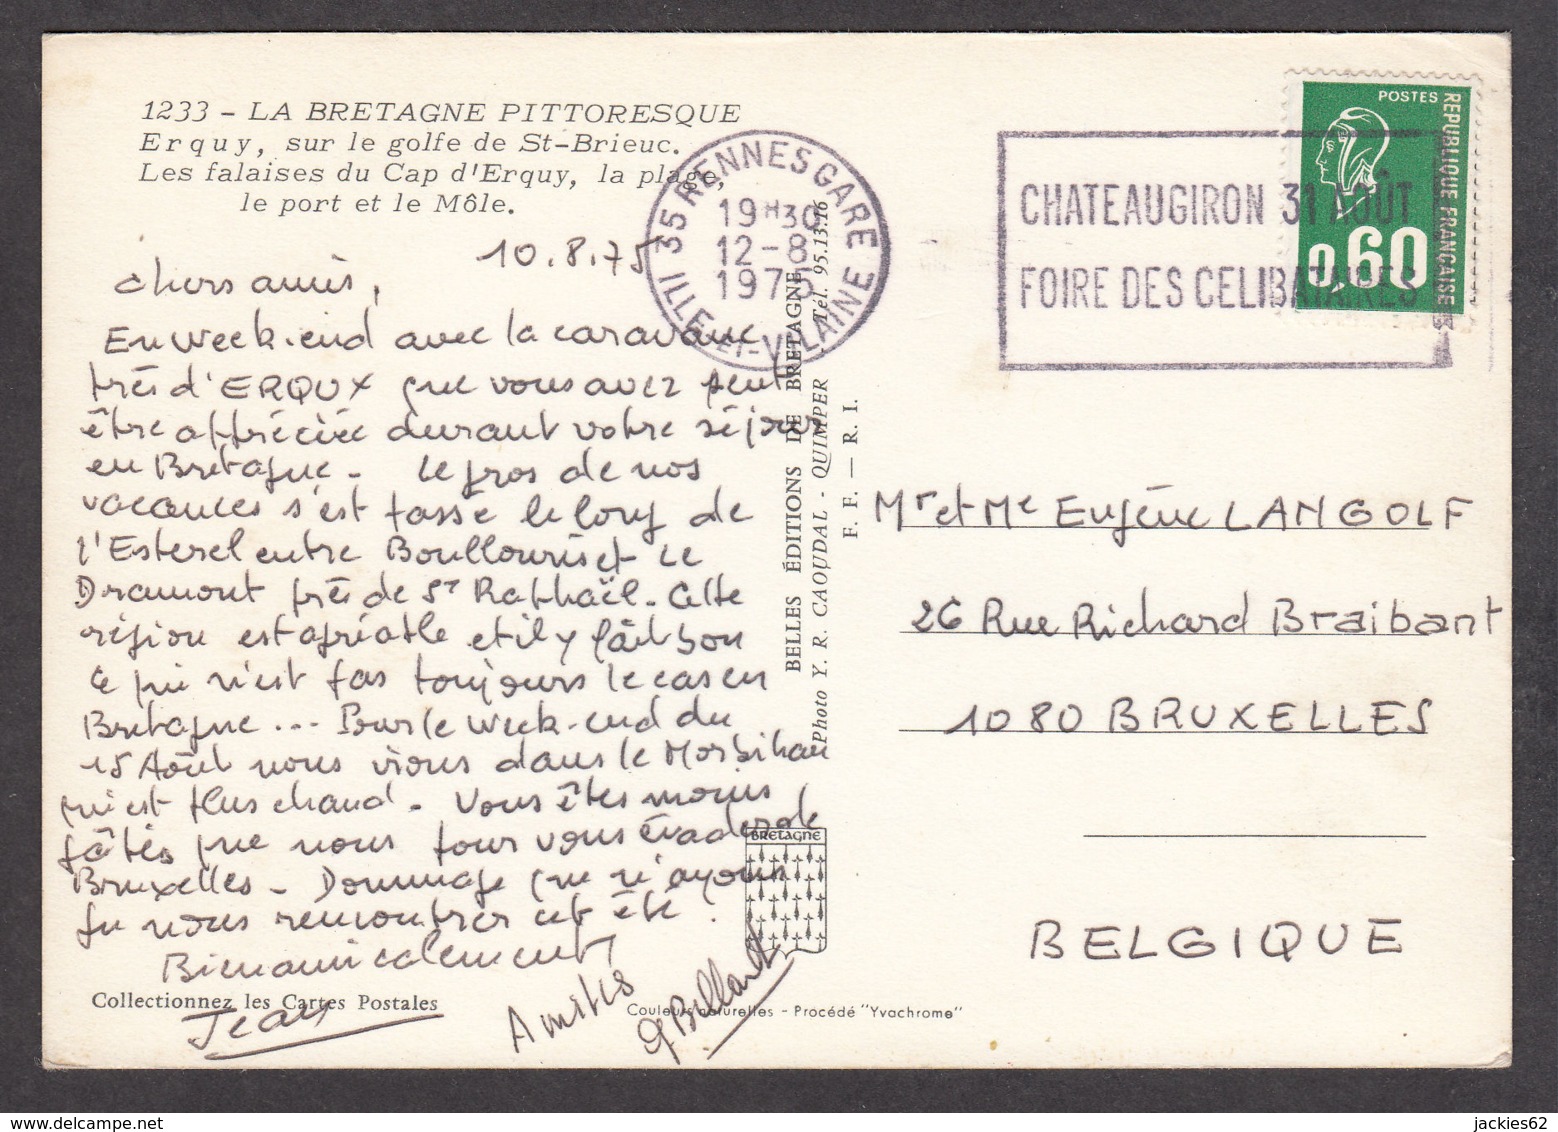 1233 - LA BRETAGNE PITTORESQUE
Erquy, sur le golfe de St-Brieuc.
Les falaises du Cap d'Erquy, la plage,
le port et le Môle.
10.8.75
chers amis,
En week-end avec la caravane
près d'ERQUY que vous avez peut
être appréciée durant votre séjour
en Bretagne - Le gros de nos
vacances s'est passé le long de
l'Esterel entre Boullouris et Le
Dramont près de St Raphaël. Cette
région est agréable et il y fait bon
ce qui n'est pas toujours le cas en
Bretagne ... Pour le week-end du
15 Août nous irons dans le Morbihan
qui est plus chaud - Vous êtes moins
gâtés que nous pour vous évader de
Bruxelles - Dommage que n'ayons
pu nous rencontrer cet été !
Bien amicalement
Jean
Amitiés
Collectionnez les Cartes Postales
Couleurs naturelles - Procédé "Yvachrome"
BRETAGNE
BELLES ÉDITIONS DE BRETAGNE
Photo Y. R. CAOUDAL - QUIMPER Tél. 95.13.16
F. F. — R. I.
35 RENNES GARE
19 H 30
12-8
1975
ILLE-ET-VILAINE
CHATEAUGIRON 31 AOÛT
FOIRE DES CELIBATAIRES
POSTES
REPUBLIQUE FRANÇAISE
0,60
Mr et Me Eugène LANGOLF
26 Rue Richard Braibant
1080 BRUXELLES
BELGIQUE
jackies62